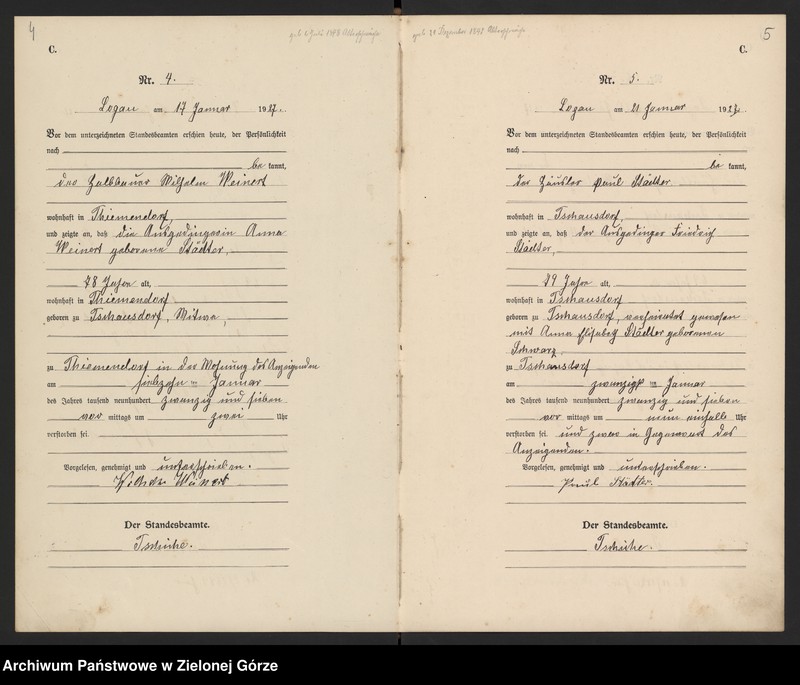 4
geb. 6 Juli 1848
C.
Nr. 4.
Logau am 17 Januar 1927.
Vor dem unterzeichneten Standesbeamten erschien heute, der Persönlichkeit
nach
be kannt,
der Halbbauer Wilhelm Weinert
wohnhaft in Thiemendorf,
und zeigte an, daß die Ausgedingerin Anna
Weinert geborene Städter,
78 Jahre alt,
wohnhaft in Thiemendorf
geboren zu Tschausdorf, Witwe,
zu Thiemendorf in der Wohnung des Anzeigenden
am siebzehn ten Januar
des Jahres tausend neunhundert zwanzig und sieben
vor mittags um zwei Uhr
verstorben sei.
Vorgelesen, genehmigt und unterschrieben.
Wilhelm Weinert
Der Standesbeamte.
Tschirke.
5
geb. 20 Dezember 1847
C.
Nr. 5.
Logau am 21 Januar 1927.
Vor dem unterzeichneten Standesbeamten erschien heute, der Persönlichkeit
nach
be kannt,
der Häusler Paul Städter
wohnhaft in Tschausdorf,
und zeigte an, daß der Ausgedinger Friedrich
Städter,
79 Jahre alt,
wohnhaft in Tschausdorf
geboren zu Tschausdorf, verheiratet gewesen
mit Anna Elisabeth Städter geborenen
Schwarz.
zu Tschausdorf
am zwanzigst ten Januar
des Jahres tausend neunhundert zwanzig und sieben
vor mittags um neun einhalb Uhr
verstorben sei. und zwar in Gegenwart des
Anzeigenden.
Vorgelesen, genehmigt und unterschrieben.
Paul Städter.
Der Standesbeamte.
Tschirke.
Archiwum Państwowe w Zielonej Górze